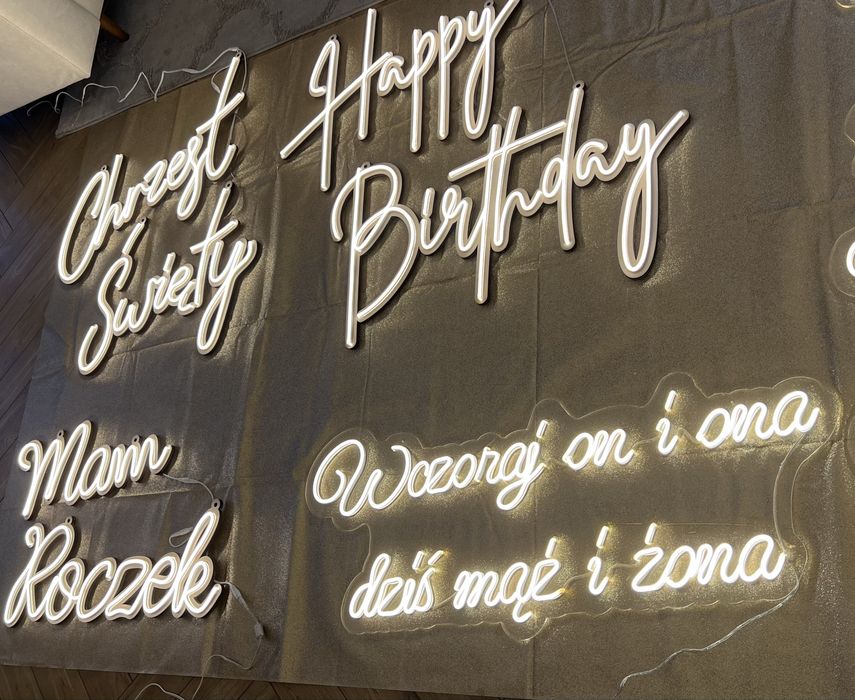 Chrzest
Święty
Happy
Birthday
Mam
Roczek
Wczoraj on i ona
dziś mąż i żona